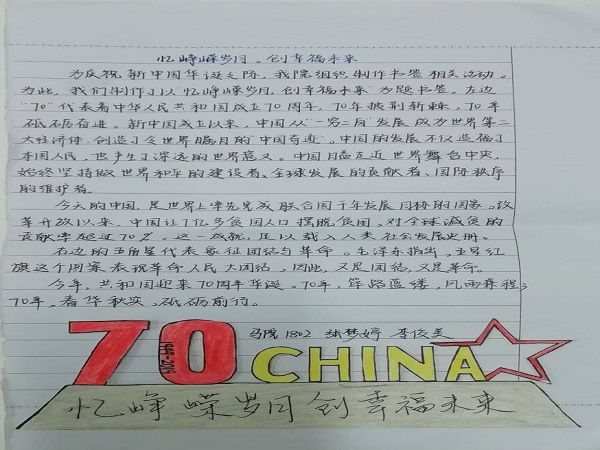 忆峥嵘岁月,创幸福未来
为庆祝新中国华诞之际,我院组织制作书签相关活动。
为此,我们制作了以“忆峥嵘岁月,创幸福未来”为题书签。左边
“70”代表着中华人民共和国成立70周年,70年披荆斩棘,70年
砥砺奋进。新中国成立以来,中国从“一穷二白”发展成为世界第二
大经济体,创造了令世界瞩目的“中国奇迹”。中国的发展不仅造福了
本国人民,也产生了深远的世界意义。中国日益走近世界舞台中央,
始终坚持做世界和平的建设者、全球发展的贡献者、国际秩序
的维护者。
今天的中国,是世界上率先完成联合国千年发展目标的国家。改
革开放以来,中国让7亿多贫困人口摆脱贫困,对全球减贫的
贡献率超过70%。这一成就,足以载入人类社会发展史册。
右边的五角星代表象征团结与革命。毛泽东指出,五星红
旗这个图案表现革命人民大团结,因此,又是团结,又是革命。
今年,共和国迎来70周年华诞。70年,筚路蓝缕,风雨兼程;
70年,春华秋实,砥砺前行。
马院1802 张梦婷 李俊美
70 1949-2019 CHINA
忆峥嵘岁月创幸福未来